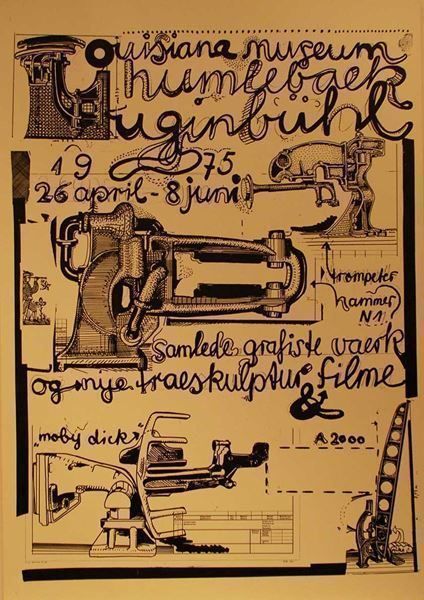 Louisiana museum
humlebaek
Luginbühl
19 75
26 april - 8 juni
trompeter
hammer
N1
samlede grafiste vaerk
og nye traeskulptur filme
&
"moby dick"
A 2000